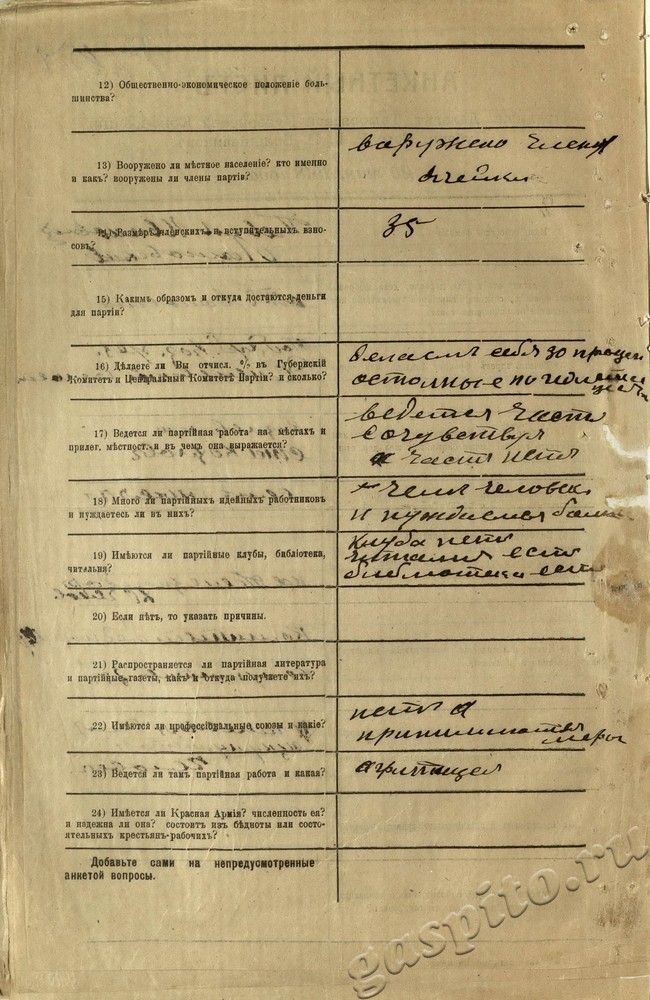 12) Общественно-экономическое положеніе боль-
шинства?
13) Вооружено ли мѣстное населеніе? кто именно
и какъ? вооружены ли члены партіи?
воружено члены
ячейки
14) Размѣръ членскихъ и вступительныхъ взно-
совъ?
35
15) Какимъ образомъ и откуда достаются деньги
для партіи?
16) Дѣлаете ли Вы отчисл. % въ Губернскій
Комитетъ и Центральный Комитетъ Партіи? и сколько?
себя 30
17) Ведется ли партійная работа на мѣстахъ и
прилег. мѣстност. и въ чемъ она выражается?
ведется часть
сочувствуя
часть нетъ
18) Много ли партійныхъ идейныхъ работниковъ
и нуждаетесь ли въ нихъ?
человек
и нуждаемся
19) Имѣются ли партійные клубы, библіотека,
читальня?
клуба нетъ
читальня есть
библиотека есть
20) Если нѣтъ, то указать причины.
21) Распространяется ли партійная литература
и партійные газеты, какъ и откуда получаете ихъ?
22) Имѣются ли профессіональные союзы и какіе?
нетъ
меры
23) Ведется ли тамъ партійная работа и какая?
24) Имѣется ли Красная Армія? численность ея?
и надежна ли она? состоитъ изъ бѣдноты или состо-
ятельныхъ крестьянъ-рабочихъ?
Добавьте сами на непредусмотренные
анкетой вопросы.
gaspito.ru